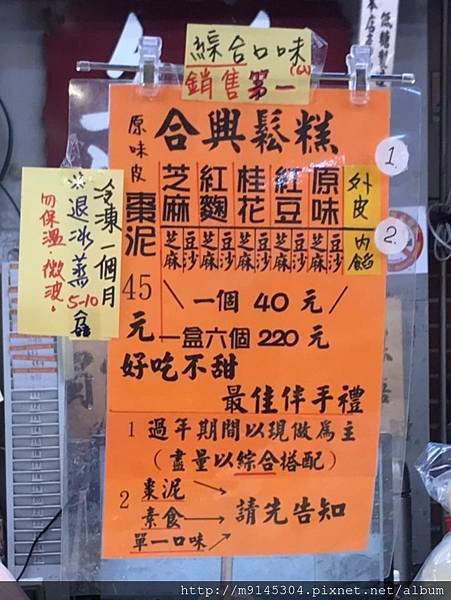 綜合口味(心)
銷售第一
低糖製
本店
合興鬆糕
1.
外皮
原味
紅豆
桂花
紅麴
芝麻
原味皮
棗泥
45元
2.
內餡
豆沙 芝麻
豆沙 芝麻
豆沙 芝麻
豆沙 芝麻
豆沙 芝麻
\一個 40 元/
一盒六個 220 元
好吃不甜
最佳伴手禮
1 過年期間以現做為主
(盡量以綜合搭配)
2 棗泥
素食→請先告知
單一口味
冷凍一個月
※退冰蒸5-10分
勿保溫.微波.
http://m9145304.pixnet.net/album